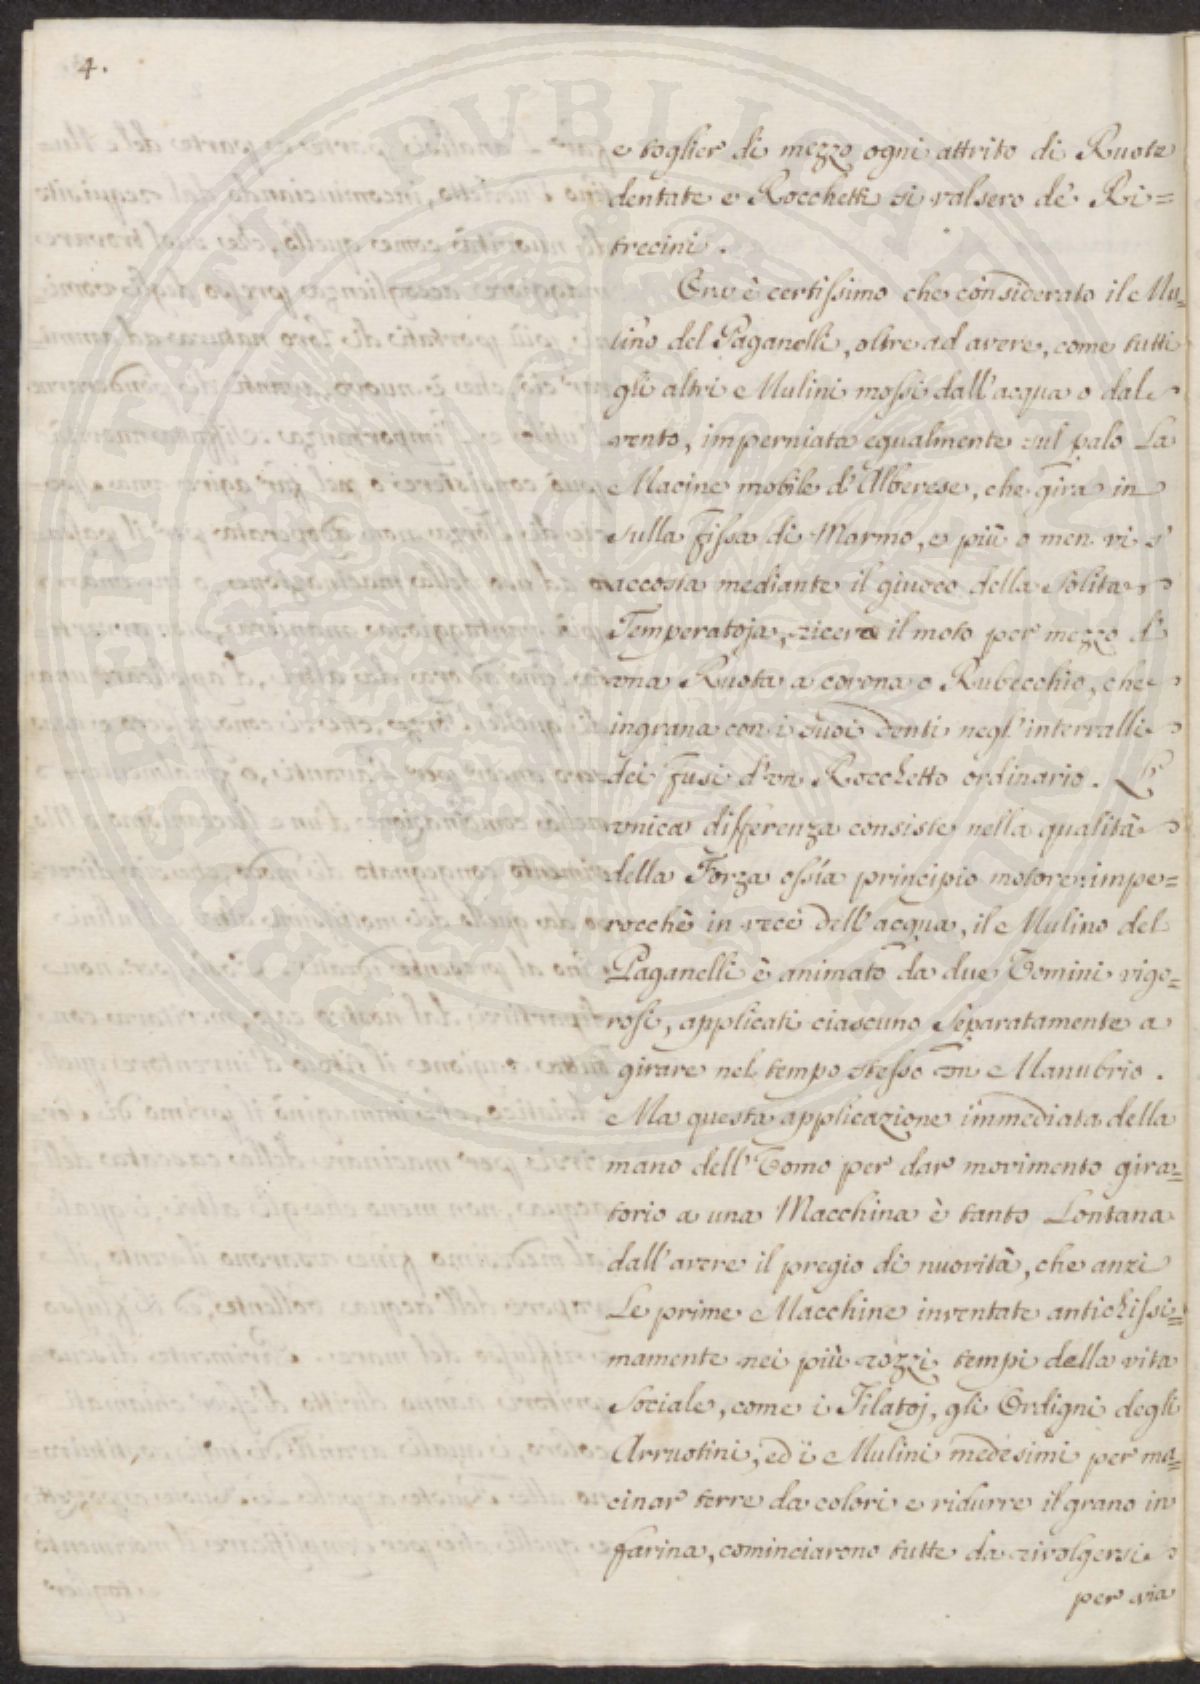 4.
e toglier di mezzo ogni attrito di Ruote
dentate e Rocchetti si valsero de' Ri=
trecini.
Ora è certissimo che considerato il Mu=
lino del Paganelli, oltre ad avere, come tutti
gli altri Mulini mossi dall'acqua o dal
vento, imperniata egualmente sul palo la
Macine mobile d'Alberese, che gira in
sulla fissa di Marmo, e più o men vi s'
accosta mediante il giuoco della solita
Temperatoja, riceve il moto per mezzo d'
una Ruota a corona o Rubecchio, che
ingrana con i suoi denti negl'intervalli
dei fusi d'un Rocchetto ordinario. L'
unica differenza consiste nella qualità
della Forza ossia principio motore: impe=
rocchè in vece dell'acqua, il Mulino del
Paganelli è animato da due Uomini vigo=
rosi, applicati ciascuno separatamente a
girare nel tempo stesso un Manubrio.
Ma questa applicazione immediata della
mano dell'Uomo per dar movimento gira=
torio a una Macchina è tanto lontana
dall'avere il pregio di nuovità, che anzi
le prime Macchine inventate antichissi=
mamente nei più rozzi tempi della vita
sociale, come i Filatoj, gli Ordigni degli
Arruotini, ed i Mulini medesimi per ma=
cinar terre da colori e ridurre il grano in
farina, cominciarono tutte da rivolgersi
per via
PUBLICAE